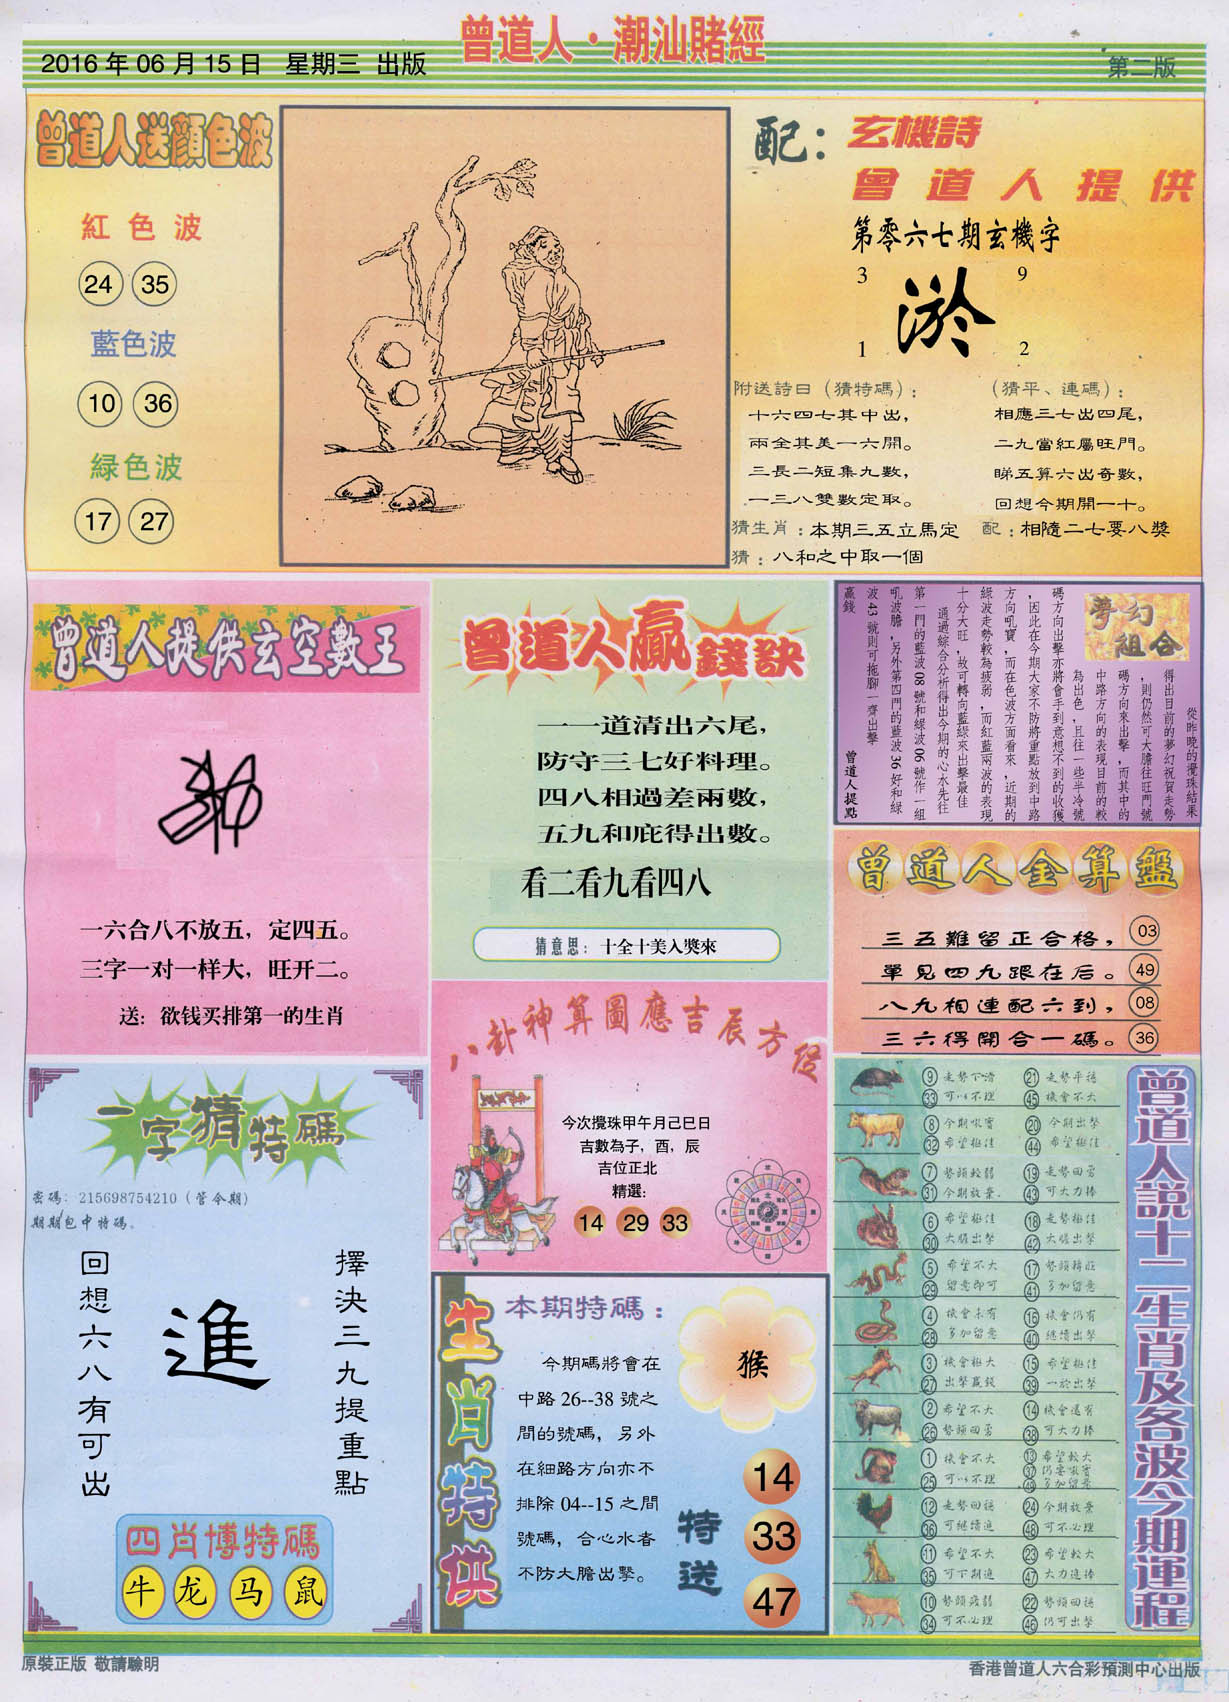 曾道人·潮汕賭經
2016年06月15日 星期三 出版
第二版
曾道人送顔色波
紅色波
24 35
藍色波
10 36
緑色波
17 27
配：玄機詩
曾道人提供
第零六七期玄機字
3 9
淤
1 2
附送詩曰（猜特碼）：
十六四七其中出，
兩全其美一六開。
三長二短集九數，
一三八雙數定取。
（猜平、連碼）：
相應三七出四尾，
二九當紅屬旺門。
睇五算六出奇數，
回想今期開一十。
猜生肖：本期三五立馬定
配：相隨二七要八獎
猜：八和之中取一個
曾道人提供玄空數王
一六合八不放五，定四五。
三字一对一样大，旺开二。
送：欲钱买排第一的生肖
曾道人贏錢訣
一一道清出六尾，
防守三七好料理。
四八相過差兩數，
五九和庇得出數。
看二看九看四八
猜意思：十全十美入獎來
夢幻組合
從昨晚的攪珠結果
得出目前的夢幻祝賀走勢
，則仍然可大膽往旺門號
碼方向來出擊，而其中的
中路方向的表現目前的較
為出色，且往一些半冷號
碼方向出擊亦將會手到意想不到的收獲
，因此在今期大家不防將重點放到中路
方向吼寶，而在色波方面看來，近期的
綠波走勢較為疲弱，而紅藍兩波的表現
十分大旺，故可轉向藍綠來出擊最佳
通過綜合分析得出今期的心水先往
第一門的藍波08號和綠波06號作一組
吼波膽，另外第四門的藍波36好和綠
波43號則可拖腳一齊出擊
贏錢
曾道人提點
曾道人金算盤
三五難留正合格， 03
單見四九跟在后。 49
八九相連配六到， 08
三六得開合一碼。 36
八卦神算圖應吉辰方位
今次攪珠甲午月己巳日
吉數為子，酉，辰
吉位正北
精選：
14 29 33
一字猜特碼
密碼：215698754210（管令期）
期期包中特碼。
擇決三九提重點
進
回想六八有可出
四肖博特碼
牛 龙 马 鼠
生肖特供
本期特碼：
今期碼將會在
中路26--38號之
間的號碼，另外
在細路方向亦不
排除04--15之間
號碼，合心水者
不防大膽出擊。
猴
特送
14
33
47
曾道人説十二生肖及各波今期運程
9 走勢下滑 21 走勢平穩
33 可以不理 45 機會不大
8 今期吼實 20 今期出擊
32 希望極佳 44 希望極佳
7 勢頭較弱 19 走勢回勇
31 今期放棄. 43 可大力捧
6 希望極佳 18 走勢極佳
30 大膽出擊 42 大膽出擊
5 希望不大 17 勢頭轉旺
29 留意即可 41 多加留意
4 機會未有 16 機會仍有
28 多加留意 40 繼續出擊
3 機會極大 15 希望極佳
27 出擊贏錢 39 一於出擊
2 希望不大 14 機會還有
26 勢頭回勇 38 可大力捧
1 機會不大 13 希望較大
25 可以不理 37 仍要吼實
49 多加留意
12 走勢回穩 24 今期放棄
36 可繼續進 48 可不必理
11 希望不大 23 希望較大
35 可下期進 47 大力進捧
10 勢頭疲弱 22 勢頭回穩
34 可不必理 46 仍可出擊
原裝正版 敬請驗明
香港曾道人六合彩預測中心出版